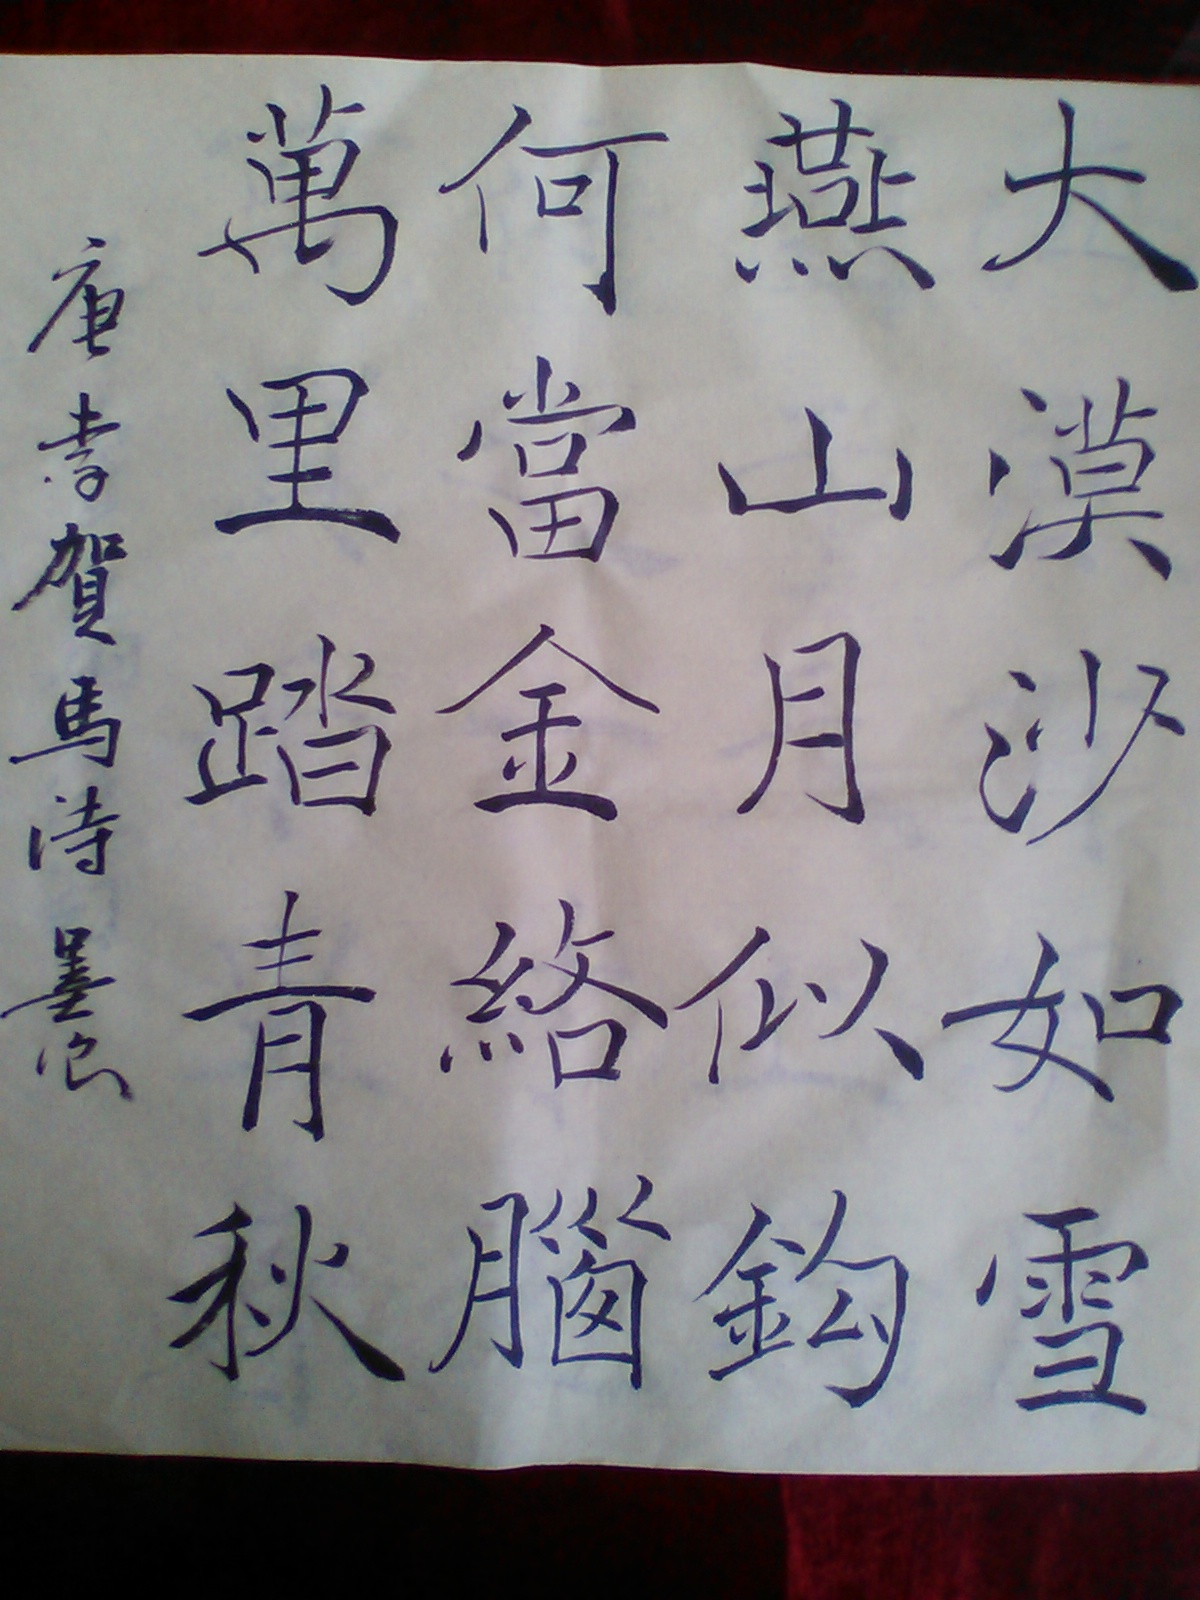 大漠沙如雪
燕山月似鈎
何當金絡腦
萬里踏青秋
唐李賀馬诗墨